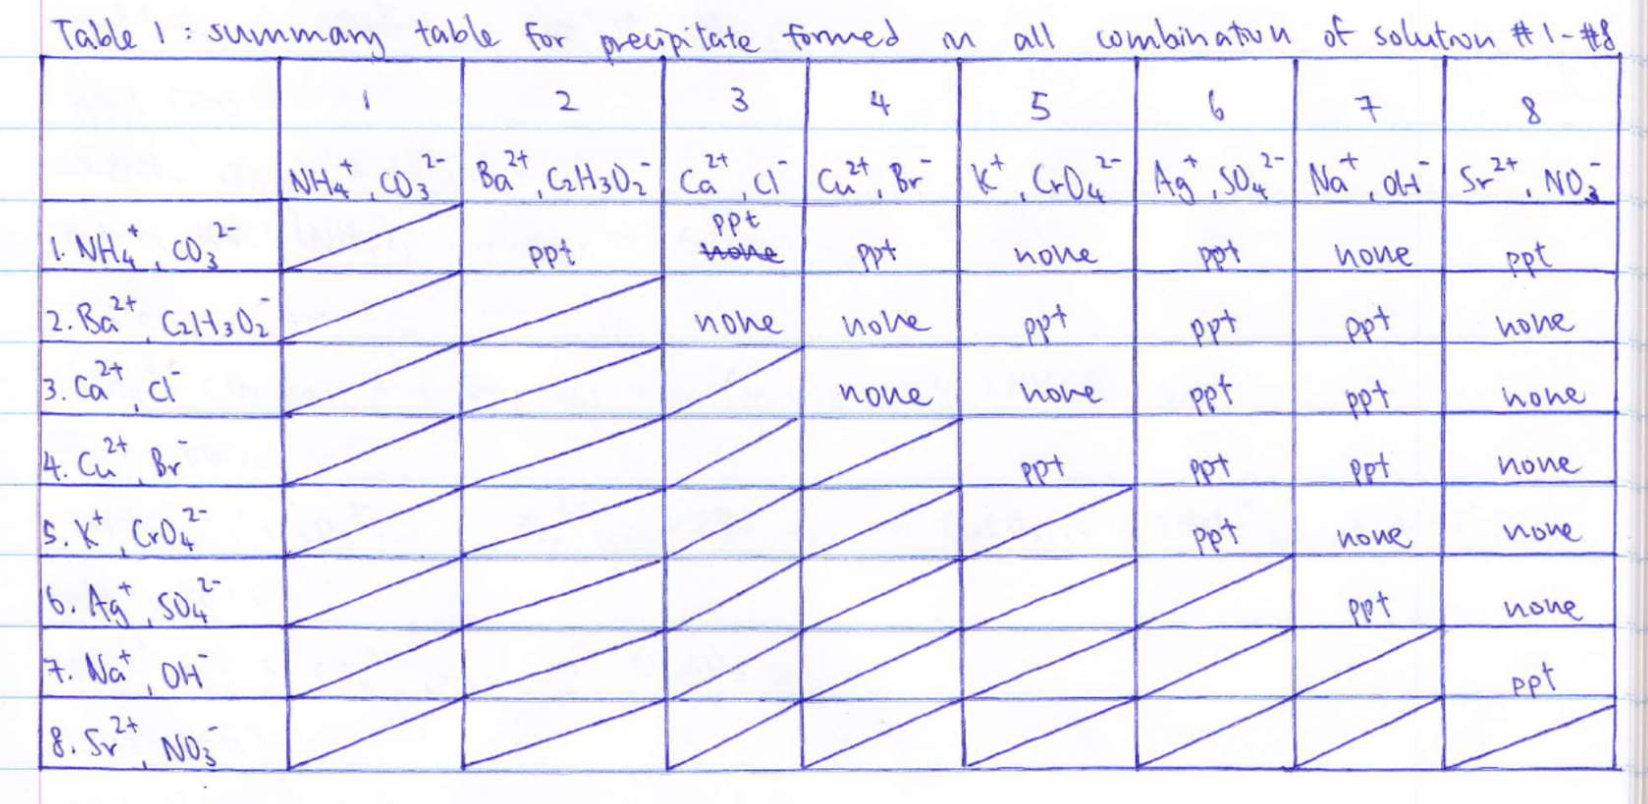 Table 1: summary table for precipitate formed in all combination of solution #1-#8
1 2 3 4 5 6 7 8
NH₄⁺, CO₃²⁻ Ba²⁺, C₂H₃O₂⁻ Ca²⁺, Cl⁻ Cu²⁺, Br⁻ K⁺, CrO₄²⁻ Ag⁺, SO₄²⁻ Na⁺, OH⁻ Sr²⁺, NO₃⁻
1. NH₄⁺, CO₃²⁻ ppt ppt none ppt none ppt none ppt
2. Ba²⁺, C₂H₃O₂⁻ none none ppt ppt ppt none
3. Ca²⁺, Cl⁻ none none ppt ppt none
4. Cu²⁺, Br⁻ ppt ppt ppt none
5. K⁺, CrO₄²⁻ ppt none none
6. Ag⁺, SO₄²⁻ ppt none
7. Na⁺, OH⁻ ppt
8. Sr²⁺, NO₃⁻